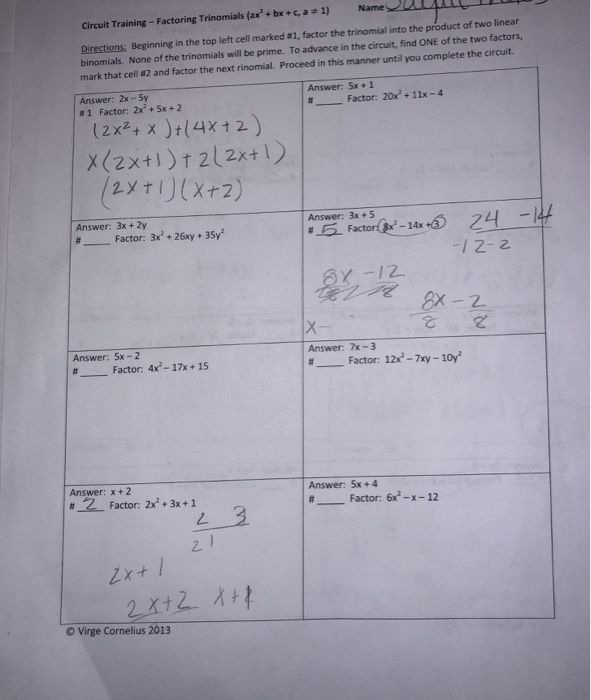 Circuit Training – Factoring Trinomials (ax² + bx + c, a ≠ 1) Name
Directions: Beginning in the top left cell marked #1, factor the trinomial into the product of two linear
binomials. None of the trinomials will be prime. To advance in the circuit, find ONE of the two factors,
mark that cell #2 and factor the next rinomial. Proceed in this manner until you complete the circuit.
Answer: 2x – 5y
# 1 Factor: 2x² + 5x + 2
(2x²+ x)+(4x+2)
x(2x+1)+2(2x+1)
(2x+1)(x+2)
Answer: 5x + 1
# ____ Factor: 20x² + 11x – 4
Answer: 3x + 2y
# ____ Factor: 3x² + 26xy + 35y²
Answer: 3x + 5
# 5 Factor: 8x² – 14x + 3
24 -14
-12-2
8x -12
8x - 2
8 8
x-
Answer: 5x – 2
# ____ Factor: 4x² – 17x + 15
Answer: 7x – 3
# ____ Factor: 12x² – 7xy – 10y²
Answer: x + 2
# 2 Factor: 2x² + 3x + 1
2 3
2 1
2x+1
2x+2 x+1
Answer: 5x + 4
# ____ Factor: 6x² – x – 12
© Virge Cornelius 2013